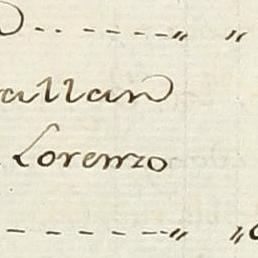 allan
Lorenzo